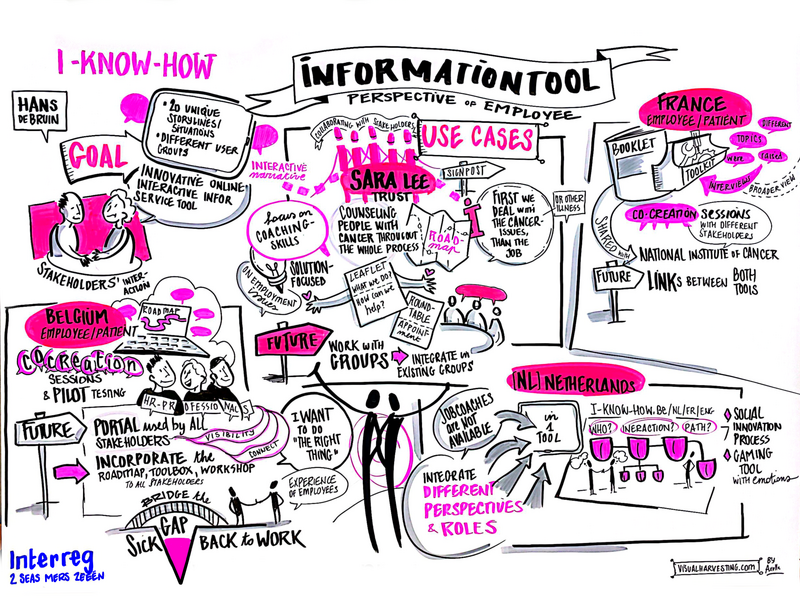 I-KNOW-HOW
INFORMATIONTOOL
PERSPECTIVE OF EMPLOYEE
HANS
DE BRUIN
• 20 UNIQUE
STORYLINES/
SITUATIONS
• DIFFERENT USER
GROUPS
GOAL
INNOVATIVE ONLINE
INTERACTIVE INFOR
SERVICE TOOL
STAKEHOLDERS' INTER-
ACTION
INTERACTIVE
narrative
COLLABORATING WITH STAKEHOLDERS
USE CASES
SARA LEE
TRUST
SIGNPOST
focus on
COACHING-
SKILLS
COUNSELING
PEOPLE WITH
CANCER THROUGHOUT
THE WHOLE PROCESS
ROAD-
map
i
FIRST WE
DEAL WITH
THE CANCER-
ISSUES,
THAN THE
JOB
OR OTHER
ILLNESS
SOLUTION-
FOCUSED
ON EMPLOYMENT
issues
LEAFLET
WHAT WE DO?
HOW CAN WE
help?
ROUND-
TABLE
APPOINT
MENT
FUTURE
WORK WITH
GROUPS
INTEGRATE in
EXISTING GROUPS
FRANCE
EMPLOYEE/PATIENT
BOOKLET
TOOLKIT
DIFFERENT
TOPICS
were
raised
INTERVIEWS
BROADER VIEW
CO-CREATION SESSIONS
WITH DIFFERENT
STAKEHOLDERS
SHARED WITH
NATIONAL INSTITUTE OF CANCER
FUTURE
LINKS BETWEEN BOTH
TOOLS
BELGIUM
EMPLOYEE/PATIENT
ROADMAP
COCREATION
SESSIONS
& PILOT TESTING
HR-PROFESSIONALS
FUTURE
PORTAL used by ALL
STAKEHOLDERS
VISIBILITY
CONNECT
INCORPORATE the
ROADMAP, TOOLBOX, WORKSHOP
TO ALL STAKEHOLDERS
BRIDGE the
GAP
SICK
BACK to WORK
I WANT
TO DO
"THE RIGHT
THING"
EXPERIENCE
OF EMPLOYEES
[NL] NETHERLANDS
JOBCOACHES
are NOT
AVAILABLE
in
1
TOOL
INTEGRATE
DIFFERENT
PERSPECTIVES
& ROLES
I-KNOW-HOW.BE/NL/FR/ENG
WHO? INERACTION? PATH?
SOCIAL
INNOVATION
PROCESS
GAMING
TOOL
with emotions
Interreg
2 SEAS MERS ZEEËN
VISUALHARVESTING.com
BY